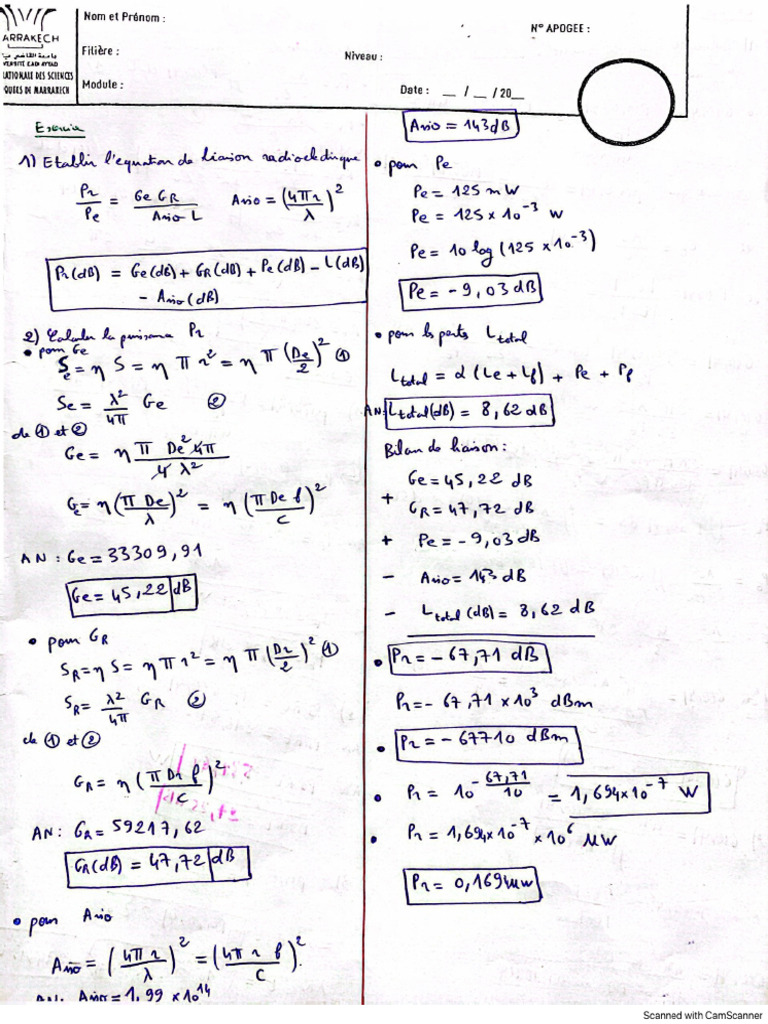 Nom et Prénom :
N° APOGEE :
ARRAKECH
Filière :
Niveau :
VERSITÉ CADI AYYAD
ATIONALE DES SCIENCES
QUÉES DE MARRAKECH
Module :
Date : __ / __ / 20__
Exercice
1) Etablir l'equation de liaison radioelectrique
Pr/Pe = Ge GR / Aiso L    Aiso = (4πr/λ)²
Pr(dB) = Ge(dB) + GR(dB) + Pe(dB) - L(dB)
- Aiso(dB)
2) Calculer la puissance Pr
• pour Ge
Se = η S = η π r² = η π (De/2)² ①
Se = λ²/4π Ge ②
de ① et ②
Ge = η π De² 4π / 4 λ²
Ge = η (π De/λ)² = η (π De f/c)²
AN : Ge = 33309,91
Ge = 45,22 dB
• pour GR
SR = η S = η π r² = η π (Dr/2)² ①
SR = λ²/4π GR ②
de ① et ②
GR = η (π Dr f/c)²
AN : GR = 59217,62
GR(dB) = 47,72 dB
• pour Aiso
Aiso = (4π r/λ)² = (4π r f/c)².
AN: Aiso = 1,99 x 10¹⁴
Aiso = 143 dB
• pour Pe
Pe = 125 mW
Pe = 125 x 10⁻³ W
Pe = 10 log (125 x 10⁻³)
Pe = -9,03 dB
• pour les perts Ltotal
Ltotal = α (Le + Lf) + Pe + Pf
AN: Ltotal(dB) = 8,62 dB
Bilan de liaison :
Ge = 45,22 dB
+ GR = 47,72 dB
+ Pe = -9,03 dB
- Aiso = 143 dB
- Ltotal (dB) = 8,62 dB
• Pr = -67,71 dB
Pr = -67,71 x 10³ dBm
• Pr = -67710 dBm
• Pr = 10^(-67,71/10) = 1,694x10⁻⁷ W
• Pr = 1,694x10⁻⁷ x 10⁶ μW
Pr = 0,1694 μw
Scanned with CamScanner